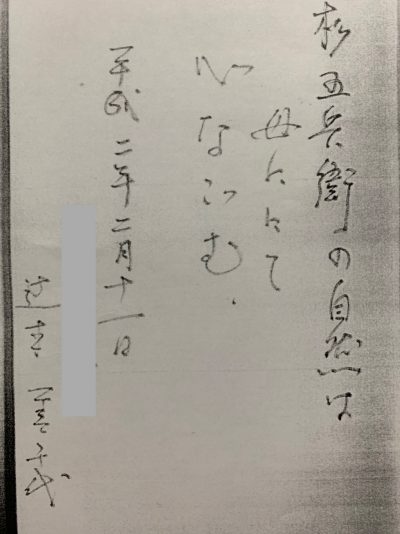 杉五兵衛の自然は
母ににて
心なごむ
平成二年二月十一日
辻本 喜千代